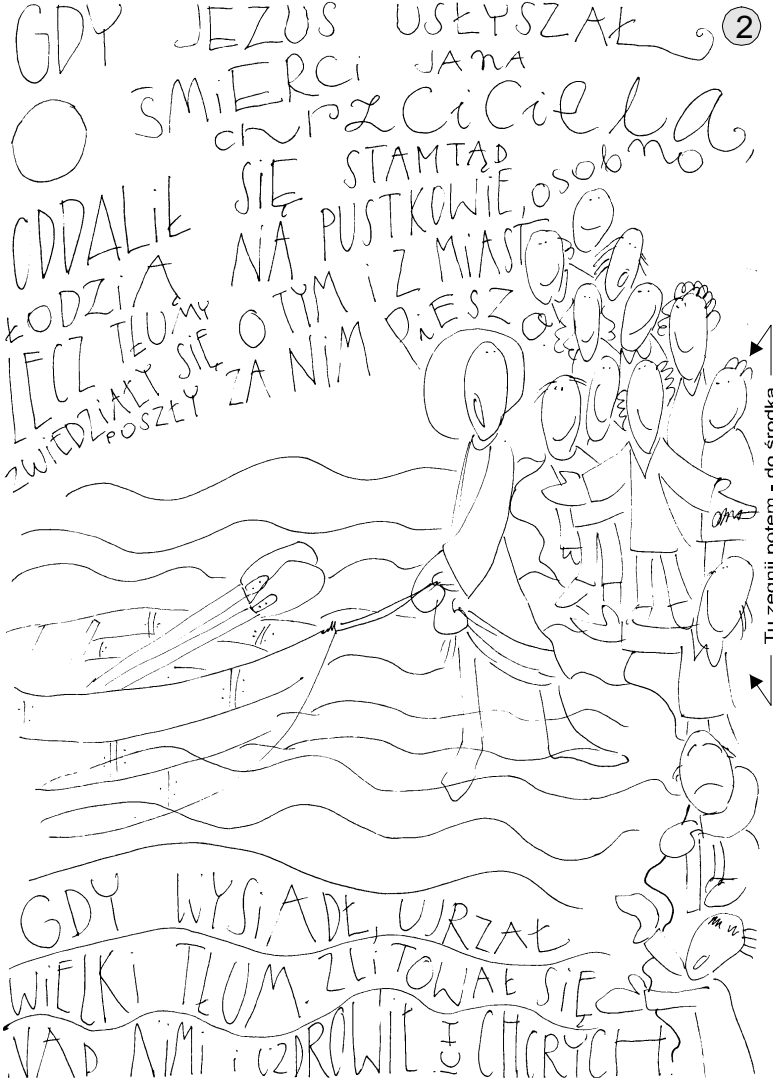 GDY JEZUS USŁYSZAŁ
2
O ŚMiERCi JANA
chrzCiCiela,
ODDALiŁ SiĘ STAMTĄD
ŁODZiĄ NA PUSTKOWiE, osobno
LECZ TŁUMY O TYM i Z MiAST
ZWiEDZiAŁY SiĘ
POSZŁY ZA NiM PiESZO
Tu zegnij potem - do środka
GDY WYSiADŁ, UJRZAŁ
WiELKi TŁUM. ZLiTOWAŁ SiĘ
NAD NiMi i UZDROWiŁ iCH CHORYCH.